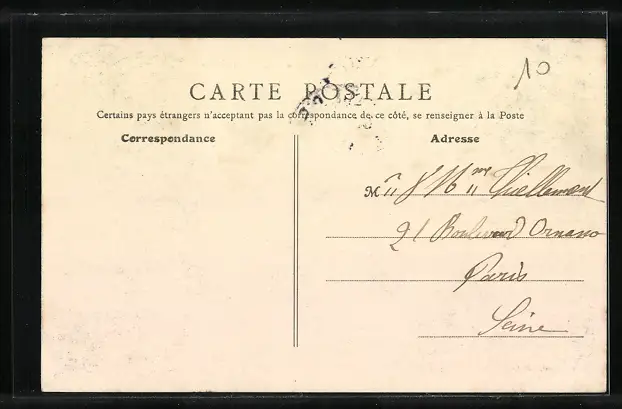 10
CARTE POSTALE
Certains pays étrangers n'acceptant pas la correspondance de ce côté, se renseigner à la Poste
Correspondance
Adresse
Mr & Mme Thiellement
21 Boulevard Ornano
Paris
Seine